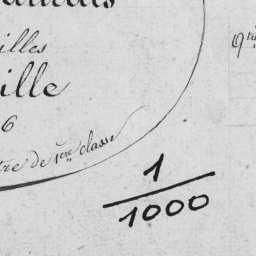 illes
ille
6
tre de 1ère classe
1
1000